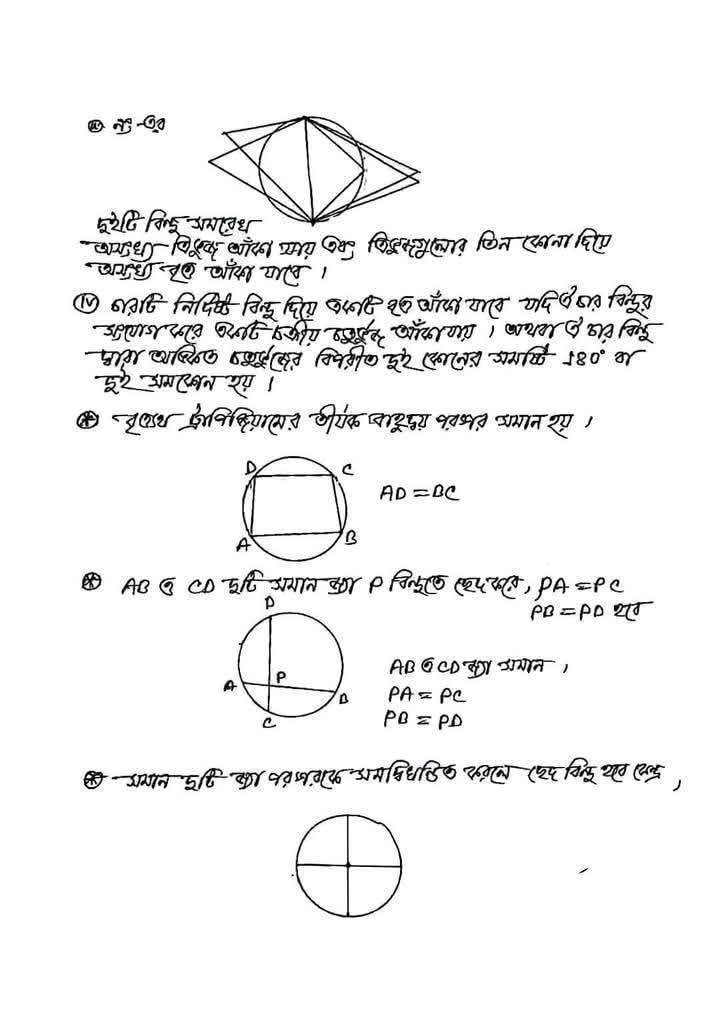 নং এর
দুইটি বিন্দু সমরেখ
অসংখ্য ত্রিভুজ আঁকা যায় এবং ত্রিভুজগুলোর তিন কোনা দিয়ে
অসংখ্য বৃত্ত আঁকা যাবে ।
(iv) চারটি নির্দিষ্ট বিন্দু দিয়ে একটি বৃত্ত আঁকা যাবে যদি ঐ চার বিন্দুর
সংযোগ করে একটি চক্রীয় চতুর্ভুজ আঁকা যায় । অথবা ঐ চার বিন্দু
দ্বারা অঙ্কিত চতুর্ভুজের বিপরীত দুই কোনের সমষ্টি ১৪০° বা
দুই সমকোন হয় ।
* বৃত্তস্থ ট্রাপিজিয়ামের তীর্যক বাহুদ্বয় পরস্পর সমান হয় ,
D C
AD = BC
A B
* AB ও CD দুটি সমান জ্যা P বিন্দুতে ছেদ করে, PA = PC
PB = PD হবে
D
AB ও CD জ্যা সমান ,
A P B
PA = PC
C
PB = PD
* সমান দুটি জ্যা পরস্পরকে সমদ্বিখন্ডিত করলে ছেদ বিন্দু হবে কেন্দ্র ,